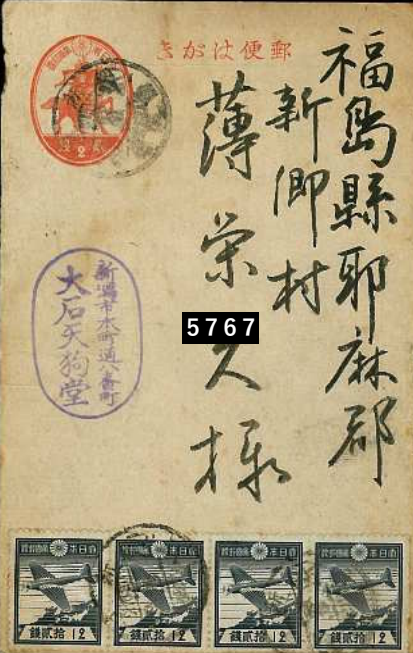 郵便はがき
福島縣耶麻郡
新郷村
薄栄久様
5767
新潟市本町通八番町
大石天狗堂
大日本帝國郵便
12 拾貳錢
大日本帝國郵便
12 拾貳錢
大日本帝國郵便
12 拾貳錢
大日本帝國郵便
12 拾貳錢